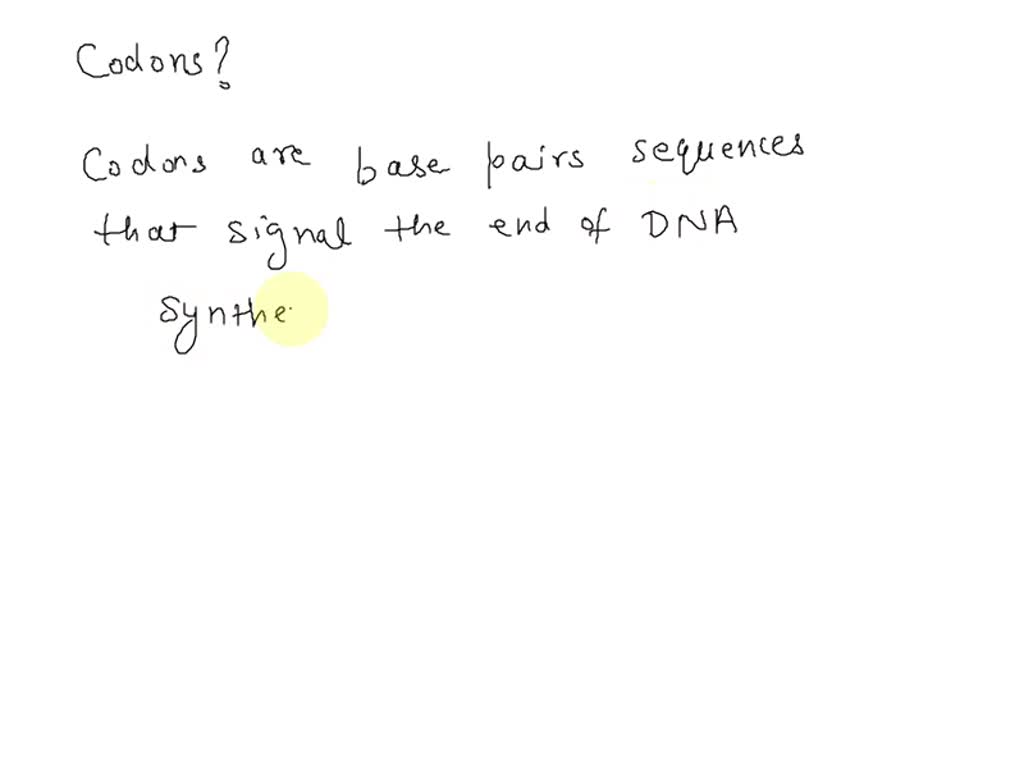 Codons?
Codons are base pairs sequences
that signal the end of DNA
Synthe